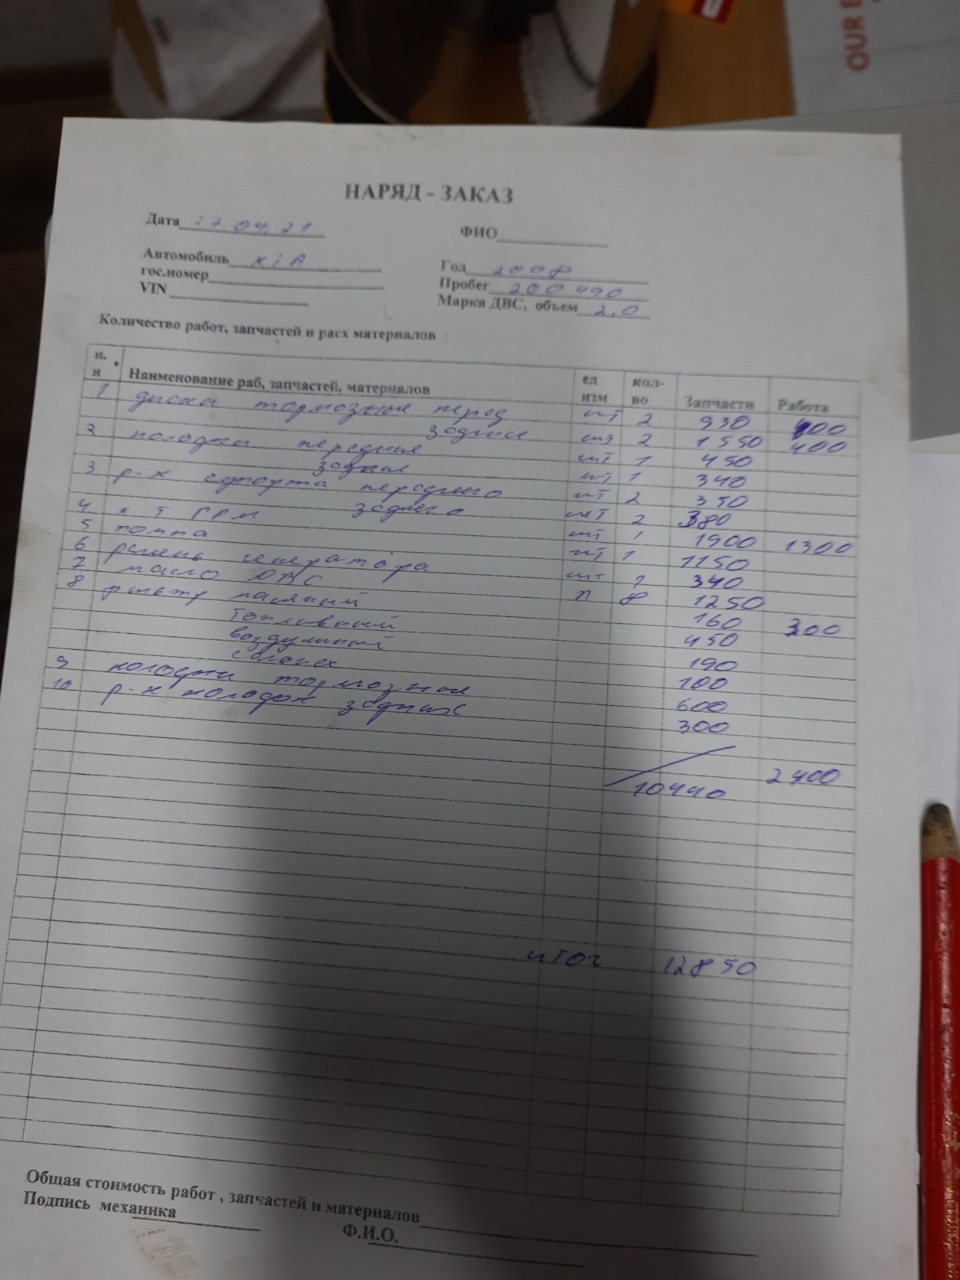 OUR
НАРЯД - ЗАКАЗ
Дата 27.04.21 ФИО
Автомобиль KiA Год 2008
гос.номер Пробег 200 490
VIN Марка ДВС, объем 2.0
Количество работ, запчастей и расх материалов
н. н Наименование раб, запчастей, материалов ед изм кол-во Запчасти Работа
1 диски тормозные перед шт 2 930 400
задние шт 2 1550 400
2 колодки передние шт 1 450
задние шт 1 340
3 р-к супорта переднего шт 2 350
заднего шт 2 380
4 к-т ГРМ шт 1 1900 1300
5 помпа шт 1 1150
6 ремень генератора шт 2 340
7 масло ДВС л 8 1250
8 фильтр масляный 160 300
топливный 450
воздушный 190
салонах 100
9 колодки тормозные 600
10 р-к колодок задних 300
10440 2400
итог 12850
Общая стоимость работ , запчастей и материалов
Подпись механика Ф.И.О.